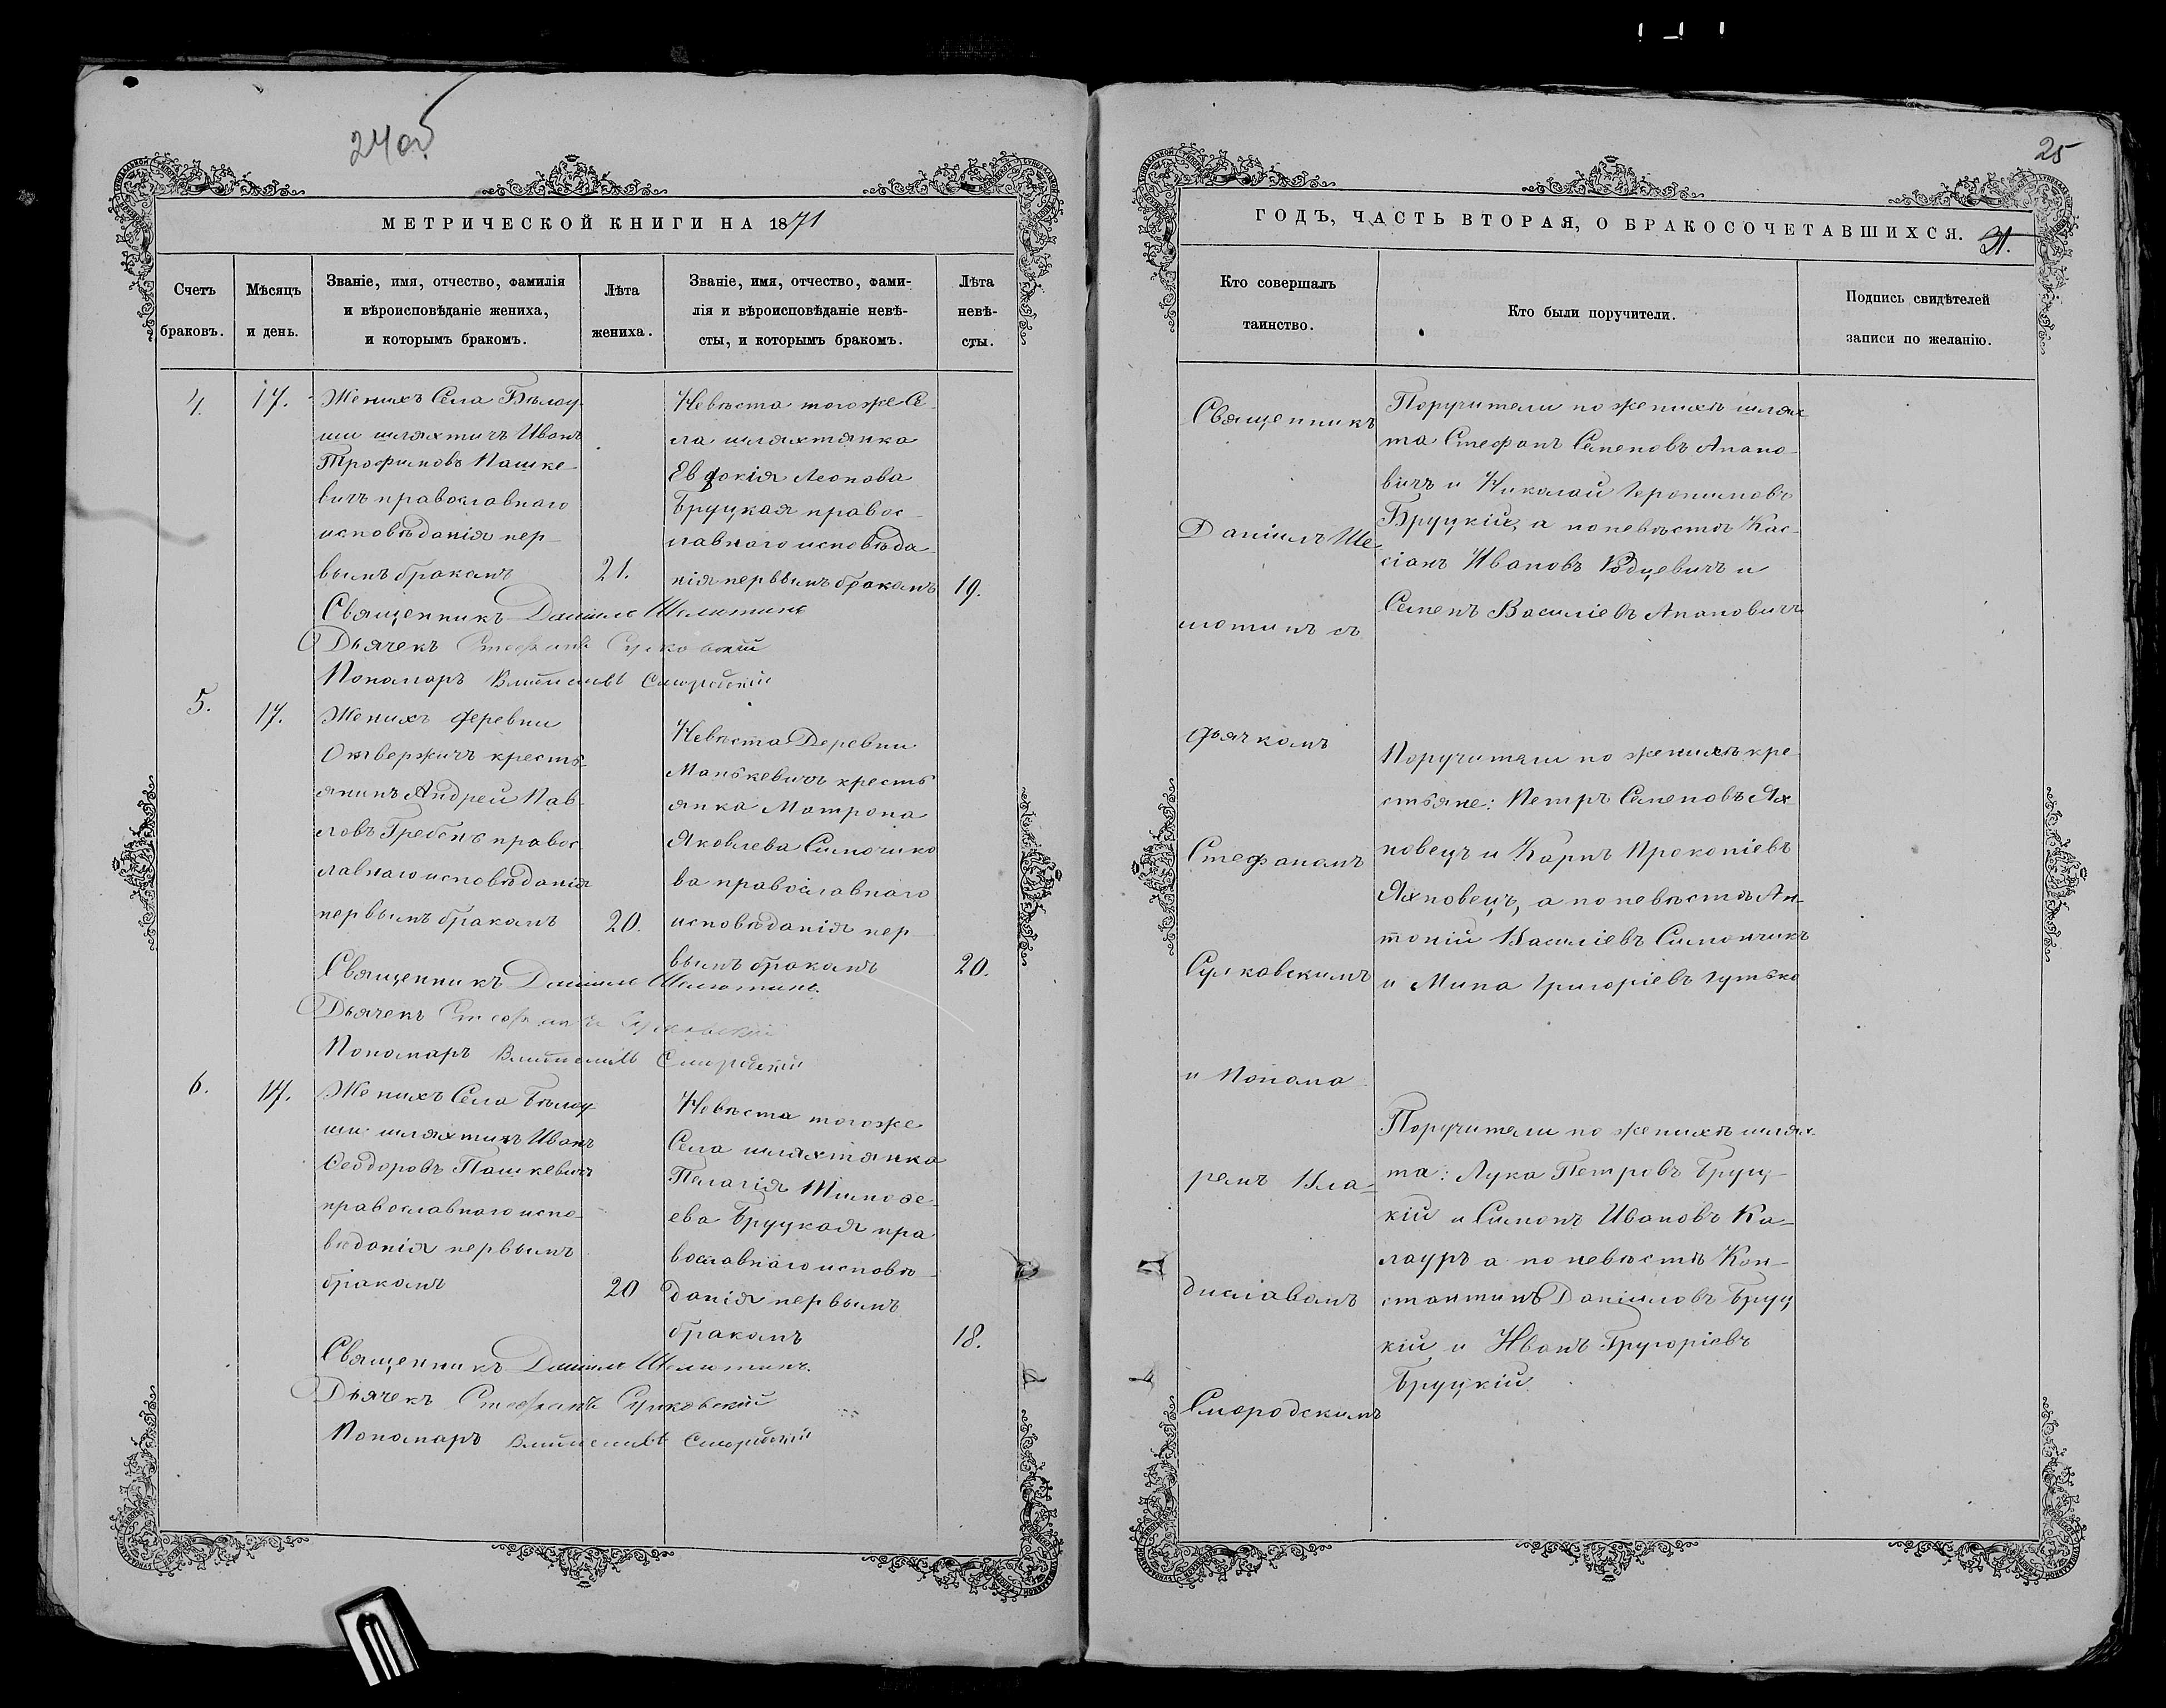 24об
МЕТРИЧЕСКОЙ КНИГИ НА 1871
Счетъ
браковъ.
Мѣсяцъ
и день.
Званіе, имя, отчество, фамилія
и вѣроисповѣданіе жениха,
и которымъ бракомъ.
Лѣта
жениха.
Званіе, имя, отчество, фами-
лія и вѣроисповѣданіе невѣ-
сты, и которымъ бракомъ.
Лѣта
невѣ-
сты.
4.
17.
Женихъ Села Бѣлоу-
ши шляхтичъ Иванъ
Трофимовъ Пашке-
вичъ православнаго
исповѣданія пер-
вымъ бракамъ
21.
Невѣста тогоже Се-
ла шляхтянка
Евдокія Леонова
Бруцкая правос-
лавнаго исповѣда-
нія первымъ бракамъ
19.
Священникъ Даніилъ Шелютинъ
Дьячекъ Стефанъ Сулковскій
Пономарь Владиславъ Смородскій
5.
17.
Женихъ деревни
Отвержичъ кресть-
янинъ Андрей Пав-
ловъ Гребень правос-
лавнаго исповѣданія
первымъ бракамъ
20.
Невѣста Деревни
Манькевичъ кресть
янка Матрона
Яковлева Симочико
ва православнаго
исповѣданія пер
вымъ бракамъ
20.
Священникъ Даніилъ Шелютинъ.
Дьячекъ Стефанъ Сулковскій
Пономарь Владиславъ Смородскій
6.
17.
Женихъ Села Бѣлоу-
ши шляхтичъ Иванъ
Ѳеодоровъ Пашкевичъ
православнаго испо-
вѣданія первымъ
бракамъ
20
Невѣста тогоже
Села шляхтянка
Пелагія Тимоѳе-
ева Бруцкая пра
вославнаго исповѣ-
данія первымъ
бракамъ
18.
Священникъ Даніилъ Шелютинъ.
Дьячекъ Стефанъ Сулковскій
Пономарь Владиславъ Смородскій
25
ГОДЪ, ЧАСТЬ ВТОРАЯ, О БРАКОСОЧЕТАВШИХСЯ.
31.
Кто совершалъ
таинство.
Кто были поручители.
Подпись свидѣтелей
записи по желанію.
Священникъ
Даніилъ Ше
лютинъ съ
дьячкомъ
Стефаномъ
Сулковскимъ
и Понама
ремъ Вла-
диславомъ
Смородскимъ
Поручители по женихѣ шлях
та Стефанъ Семеновъ Апано-
вичъ и Николай Іеронимовъ
Бруцкій, а по невѣстѣ Кас-
сіанъ Ивановъ Родцевичъ и
Семенъ Василіевъ Апановичъ
Поручители по женихѣ кре
стьяне: Петръ Семеновъ Ях-
новецъ и Карпъ Прокопіевъ
Яхновецъ, а по невѣстѣ Ан-
тоній Василіевъ Симончикъ
и Мина Григоріевъ Гутько
Поручители по женихѣ шлях-
та: Лука Петровъ Бруц-
кій и Симонъ Ивановъ Ка-
лауръ а по невѣстѣ Кон-
стантинъ Даніиловъ Бруц
кій и Иванъ Григоріевъ
Бруцкій.